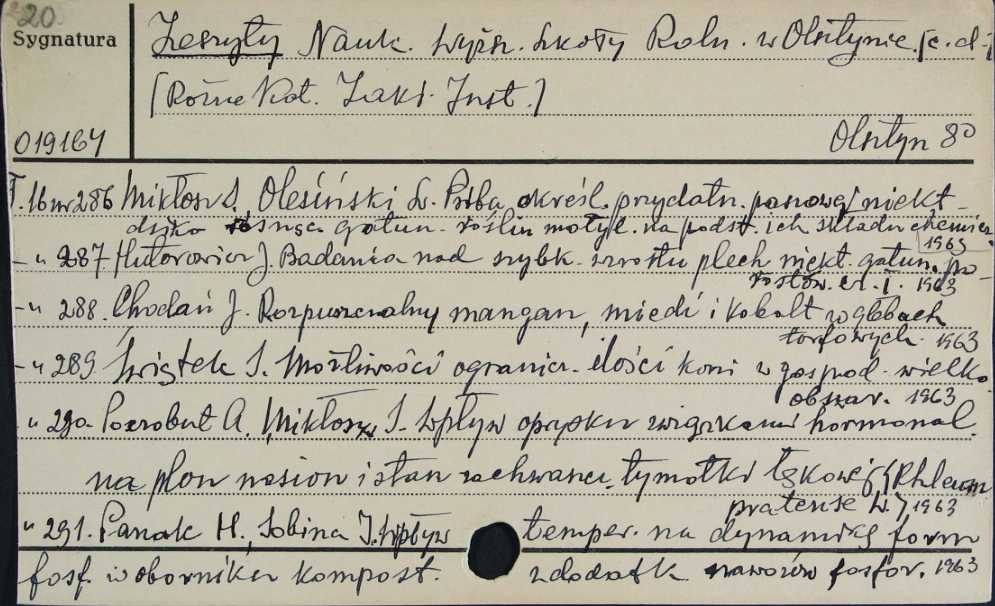 20
Sygnatura
Zeszyty Nauk. Wyższ. Szkoły Roln. w Olsztynie. [c. d-
[Różne Kat. Zakł. Inst.]
019164
Olsztyn 8°
T. 16 nr 286 Mikłosz J. Olesiński L. Próba określ. przydatn. niekt-
dziko rosnąc. gatun. roślin motyl. na podst. ich składu chemicz.
1963
-„ 287. Hutorowicz J. Badania nad szybk. wzrostu plech niekt. gatun. po-
rostów. cz. I. 1963
-„ 288. Chodań J. Rozpuszczalny mangan, miedź i kobalt w glebach
torfowych. 1963
-„ 289 Świątek S. Możliwości ogranicz. ilości koni w gospod. wielko
obszar. 1963
„ 290. Poczobut A., Mikłosz J. Wpływ oprysku związkami hormonal.
na plon nasion i stan zachwaszcz. tymotki łąkowej (Phleum
pratense L.) 1963
„ 291. Panak H., Sobina J. Wpływ temper. na dynamikę form
fosf. w oborniku kompost. z dodatk nawozów fosfor. 1963